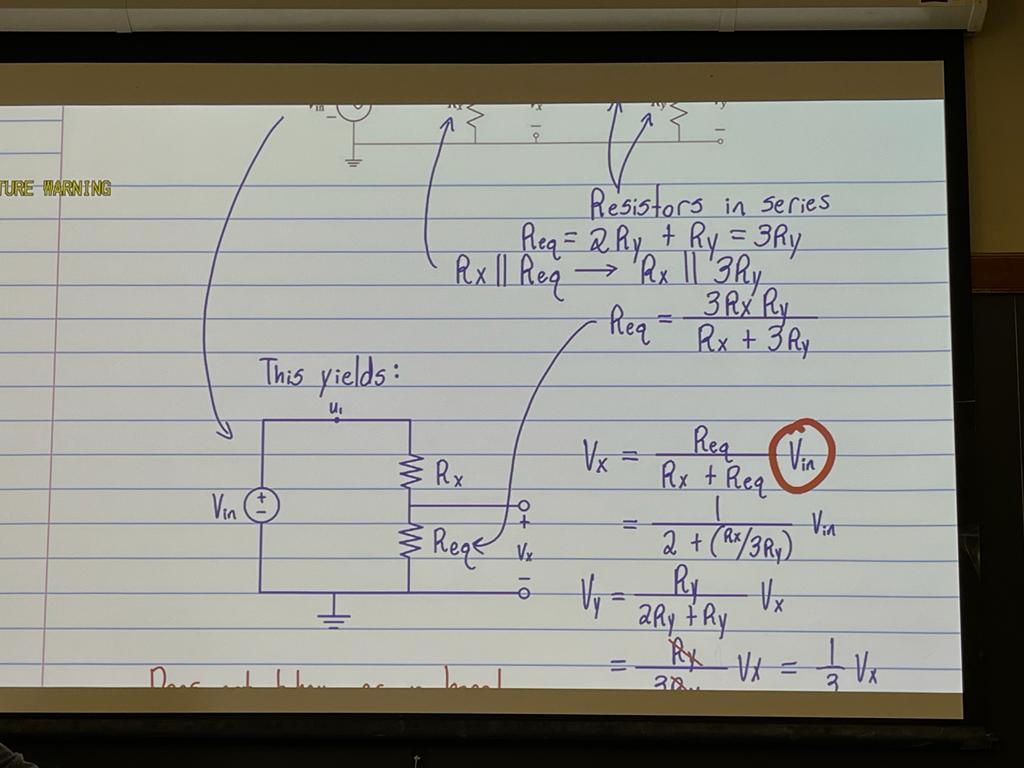 Vin
−
Rx
Vx
−
Ry
Vy
−
TURE WARNING
Resistors in series
Req = 2Ry + Ry = 3Ry
Rx || Req → Rx || 3Ry
Req = 3RxRy / Rx + 3Ry
This yields:
u₁
Vin
+
−
Rx
Req
+
Vx
−
Vx = Req / Rx + Req Vin
= 1 / 2 + (Rx/3Ry) Vin
Vy = Ry / 2Ry + Ry Vx
= Ry / 3Ry Vx = 1/3 Vx
Does not